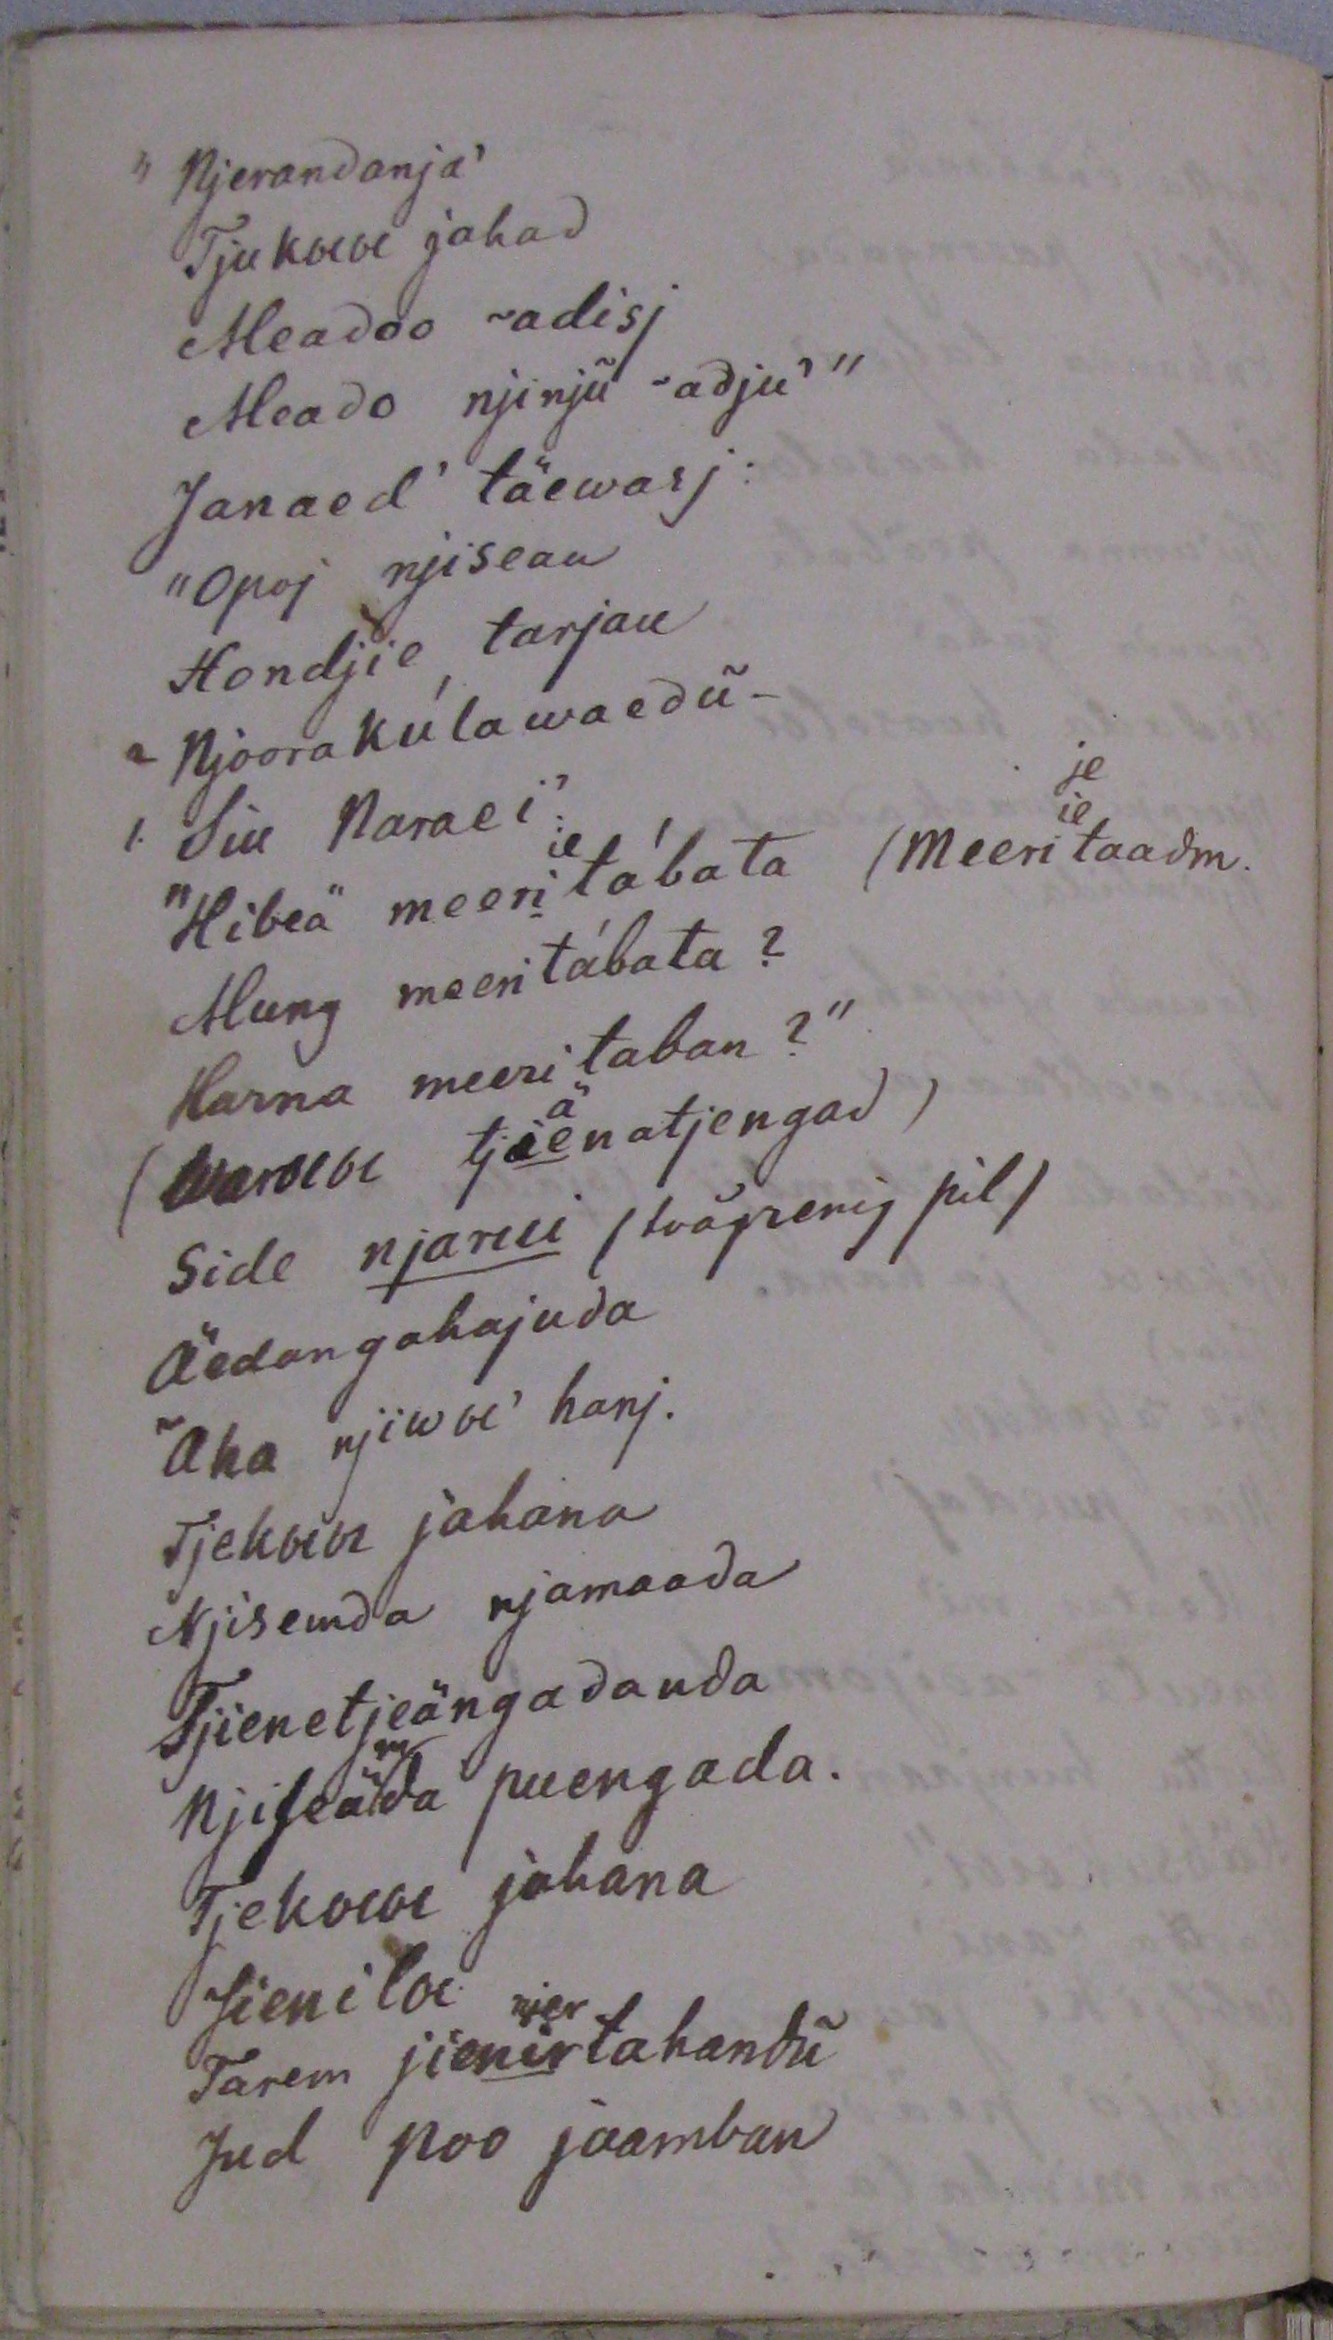 "Njerandanja'
Tjukoeoe jahad
Meadoo ~adisj
Meado njinjũ ~adju'"
Janaed' täewasj:
"Opoj njiseau
Hondjie tarjau
2 Njoorakúlawaedũ-
1. Siu Naraei':
je
ie ie
"Hibeä" meeritábata (Meeritaadm.
Mung meeritábata?
Harna meeritaban?"
ä
(Waroeoe tjienatjengad)
Side njarui (tvågrenig pil)
Äedangahajuda
~Aha njiwoe' hanj.
Tjekoeoe jahana
Njisemda njamaada
Tjienetjeängadanda
m
Njiseäda puengada.
Tjekoeoe jahana
Jieniloe
njer
Tarem jienirtahandũ
Jud poo jaamban